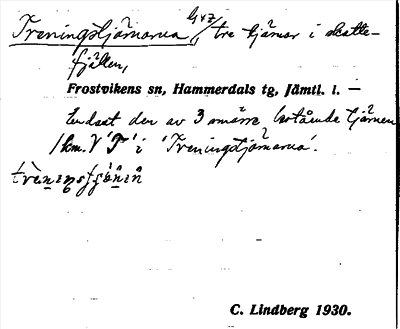 Treningstjärnarna, tre tjärnar i skatte-
fjällen,
Frostvikens sn, Hammerdals tg, Jämtl. l. —
Endast den av 3 smärre bestående tjärnen
1 km. V 'T' i 'Treningstjärnarna'.
C. Lindberg 1930.